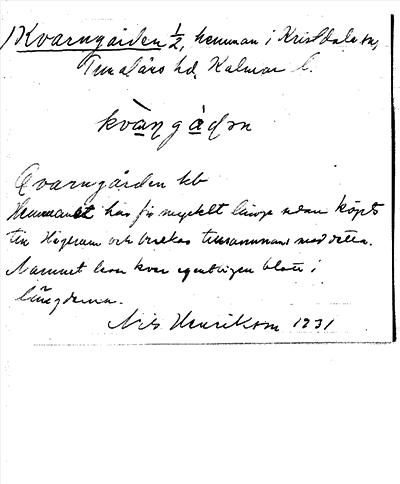 Kvarngården 1/2, hemman i Kristdala sn,
Tunaläns hd, Kalmar l.
kvàngàdn
Qvarngården kb
Hemmanet har för mycket länge sedan köpts
till Högeram och brukas tillsammans med detta.
Namnet lever kvar egentligen blott i
längderna.
Nils Henrikson 1931